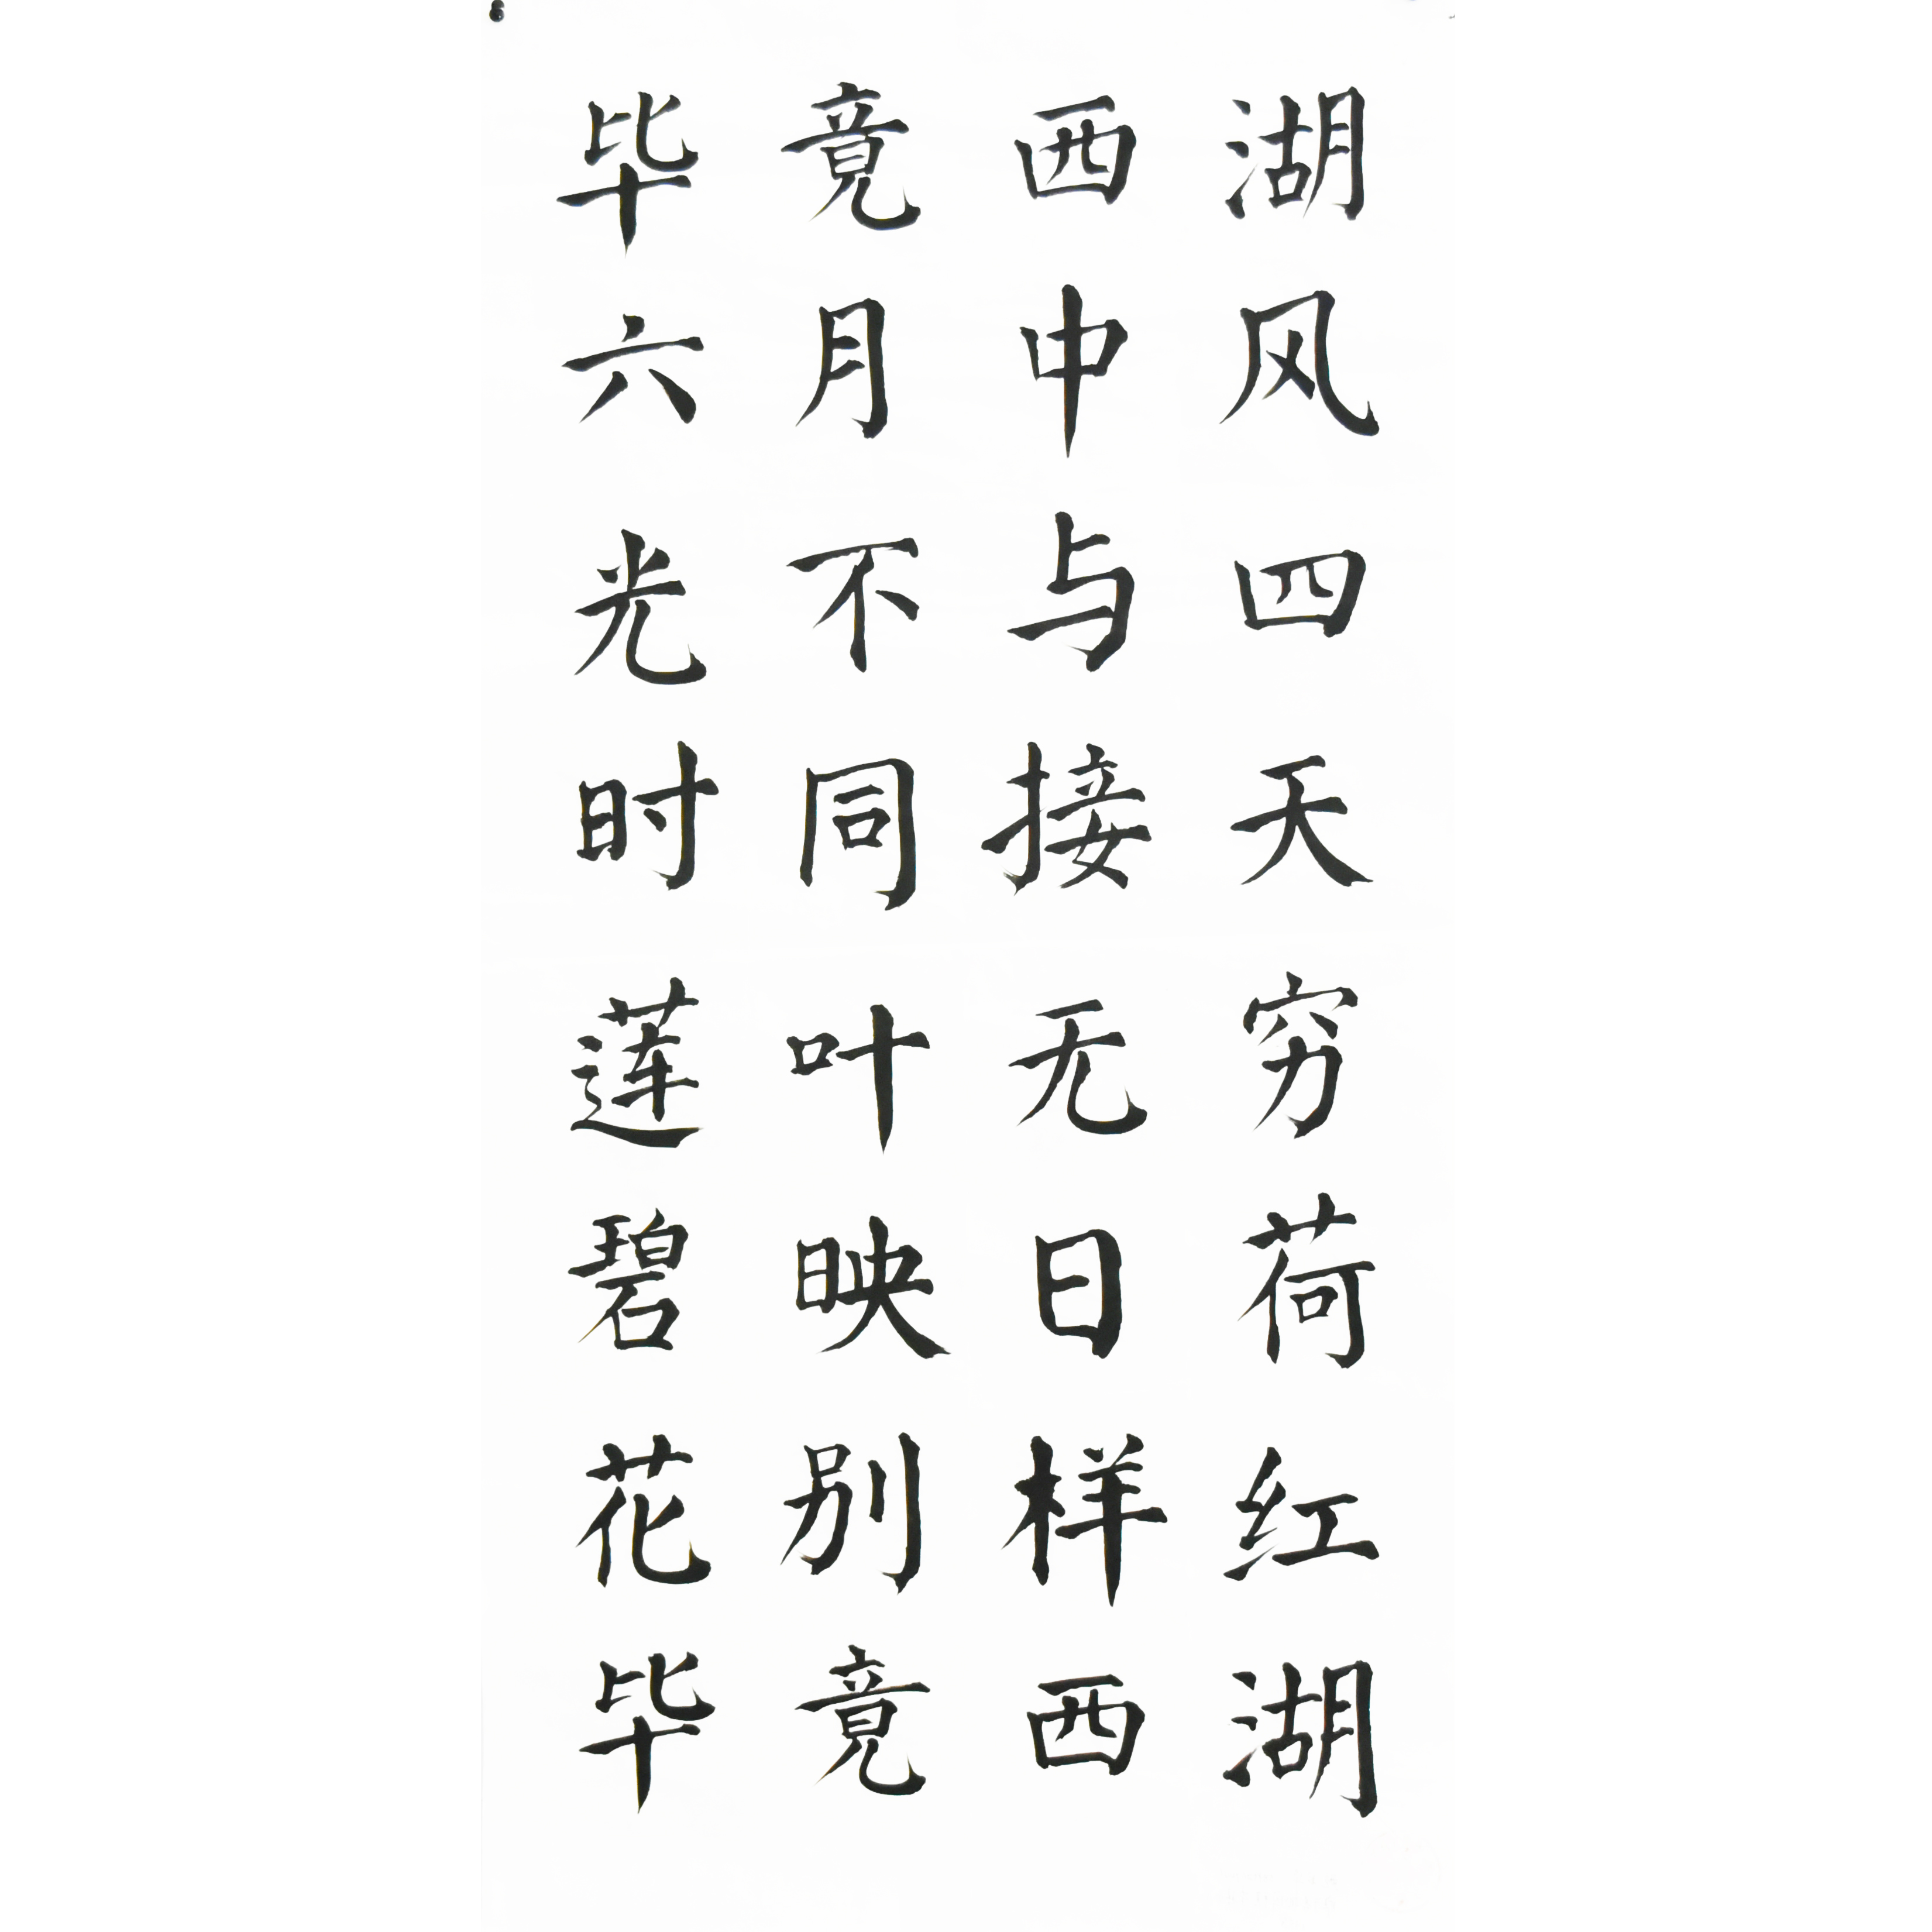 毕竟西湖
六月中风
光不与四
时同接天
莲叶无穷
碧映日荷
花别样红
毕竟西湖